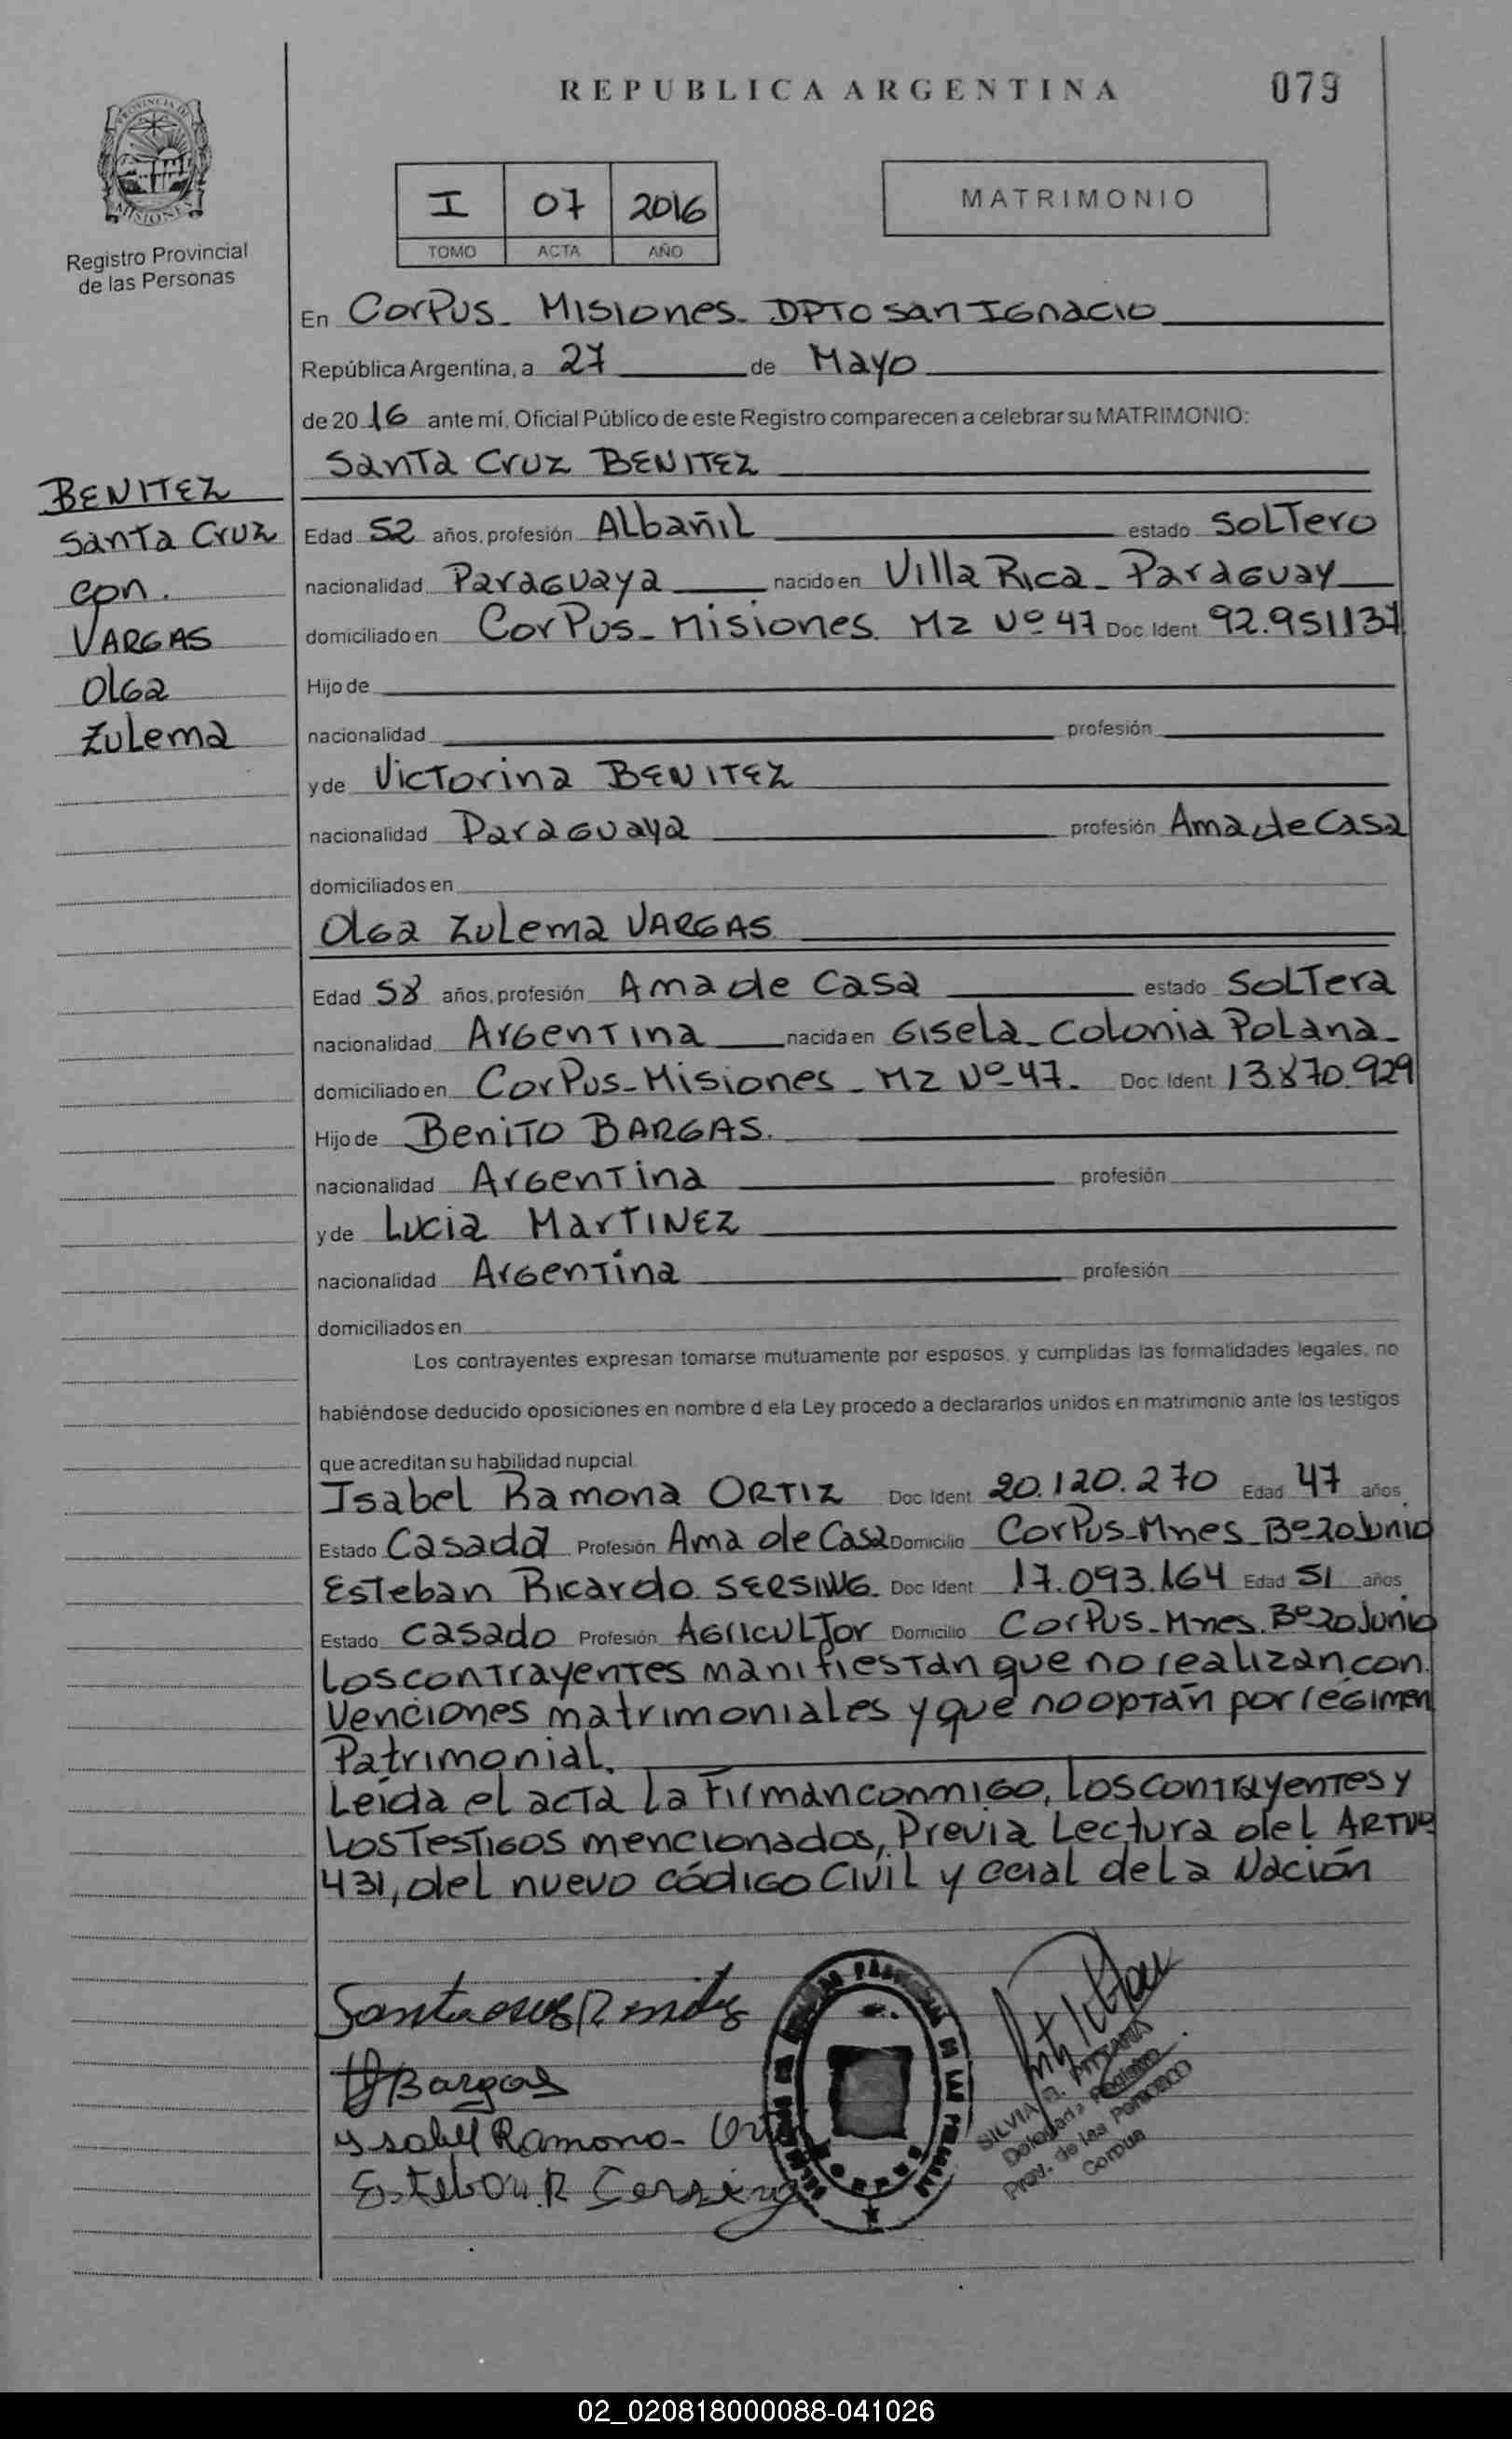 REPUBLICA ARGENTINA
079
PROVINCIA DE
MISIONES
Registro Provincial
de las Personas
I 07 2016
TOMO ACTA AÑO
MATRIMONIO
En Corpus - Misiones - DPTO San Ignacio
República Argentina, a 27 de Mayo
de 20 16 ante mí, Oficial Público de este Registro comparecen a celebrar su MATRIMONIO:
Santa Cruz BENITEZ
BENITEZ
Santa Cruz
con.
VARGAS
Olga
Zulema
Edad 52 años, profesión Albañil estado Soltero
nacionalidad Paraguaya nacido en Villa Rica - Paraguay
domiciliado en Corpus - Misiones. Mz Nº 47 Doc. Ident. 92.951137
Hijo de
nacionalidad profesión
y de Victorina BENITEZ
nacionalidad Paraguaya profesión Ama de Casa
domiciliados en
Olga Zulema VARGAS
Edad 58 años, profesión Ama de Casa estado Soltera
nacionalidad Argentina nacida en Gisela - Colonia Polana -
domiciliado en Corpus - Misiones - Mz Nº 47. Doc. Ident. 13.870.929
Hijo de Benito BARGAS.
nacionalidad Argentina profesión
y de Lucia MARTINEZ
nacionalidad Argentina profesión
domiciliados en
Los contrayentes expresan tomarse mutuamente por esposos, y cumplidas las formalidades legales, no
habiéndose deducido oposiciones en nombre d ela Ley procedo a declararlos unidos en matrimonio ante los testigos
que acreditan su habilidad nupcial
Isabel Ramona ORTIZ Doc. Ident. 20.120.270 Edad 47 años
Estado Casada Profesión Ama de Casa Domicilio Corpus - Mnes - Bº 20 Junio
Esteban Ricardo SERSING. Doc. Ident. 17.093.164 Edad 51 años
Estado Casado Profesión Agricultor Domicilio Corpus - Mnes. Bº 20 Junio
Los contrayentes manifiestan que no realizan con
venciones matrimoniales y que no optan por régimen
Patrimonial.
Leída el acta la firman conmigo, los contrayentes y
los testigos mencionados, Previa Lectura del ART Nº
431, del nuevo código Civil y ccial de la Nación
Bargas
Ysabel Ramona -
Esteban R Cersing
SILVIA
Delegada Registro
Prov. de las Personas
Corpus
02_020818000088-041026